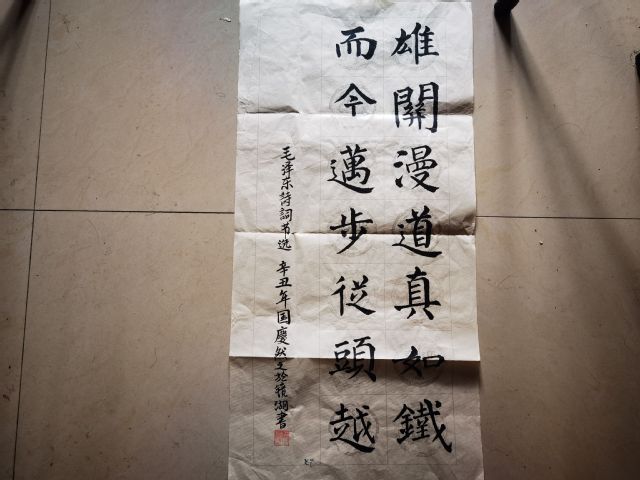 雄關漫道真如鐵
而今邁步從頭越
毛泽东詩詞节选 辛丑年国慶 書